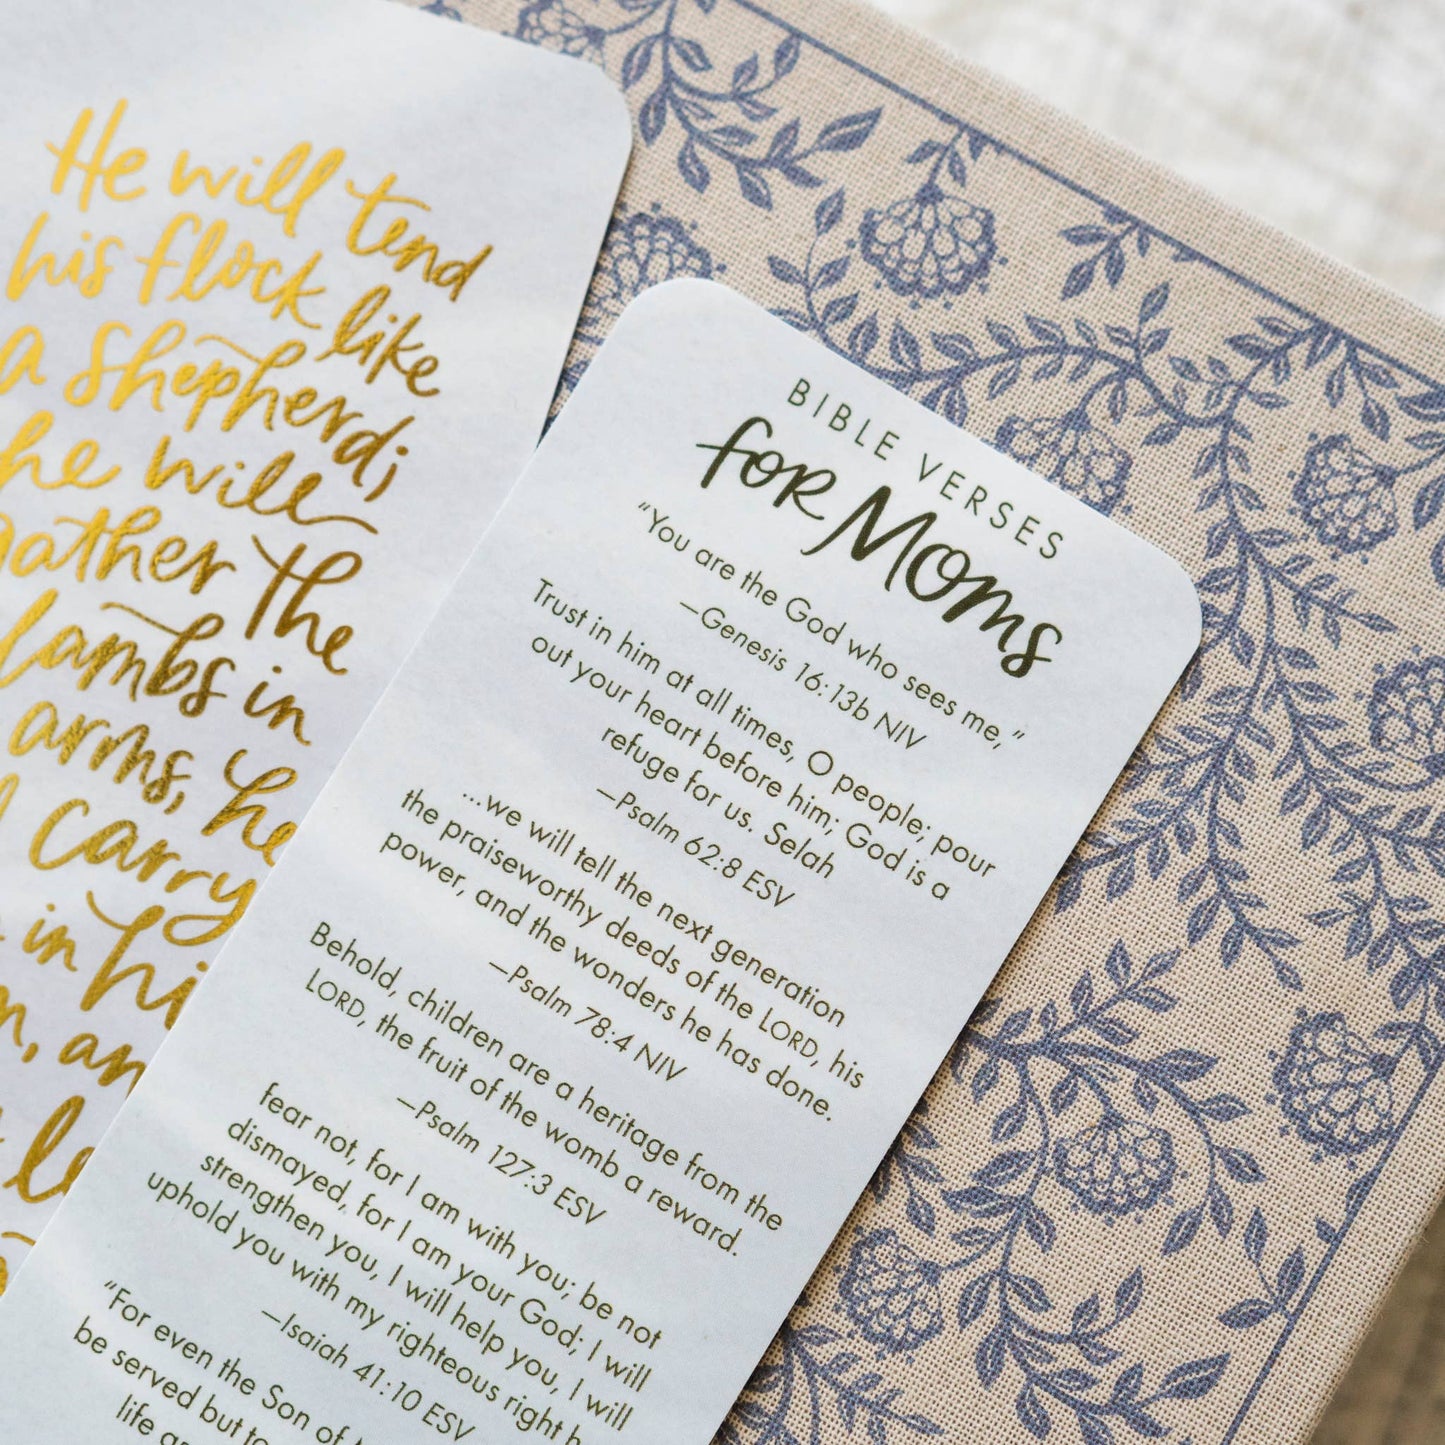 He will tend
his flock like
a shepherd;
he will
gather the
lambs in
arms, he
carry
in
an
BIBLE VERSES
for Moms
“You are the God who sees me,”
—Genesis 16:13b NIV
Trust in him at all times, O people; pour
out your heart before him; God is a
refuge for us. Selah
—Psalm 62:8 ESV
...we will tell the next generation
the praiseworthy deeds of the LORD, his
power, and the wonders he has done.
—Psalm 78:4 NIV
Behold, children are a heritage from the
LORD, the fruit of the womb a reward.
—Psalm 127:3 ESV
fear not, for I am with you; be not
dismayed, for I am your God; I will
strengthen you, I will help you, I will
uphold you with my righteous right
—Isaiah 41:10 ESV
“For even the Son of
be served but to
life